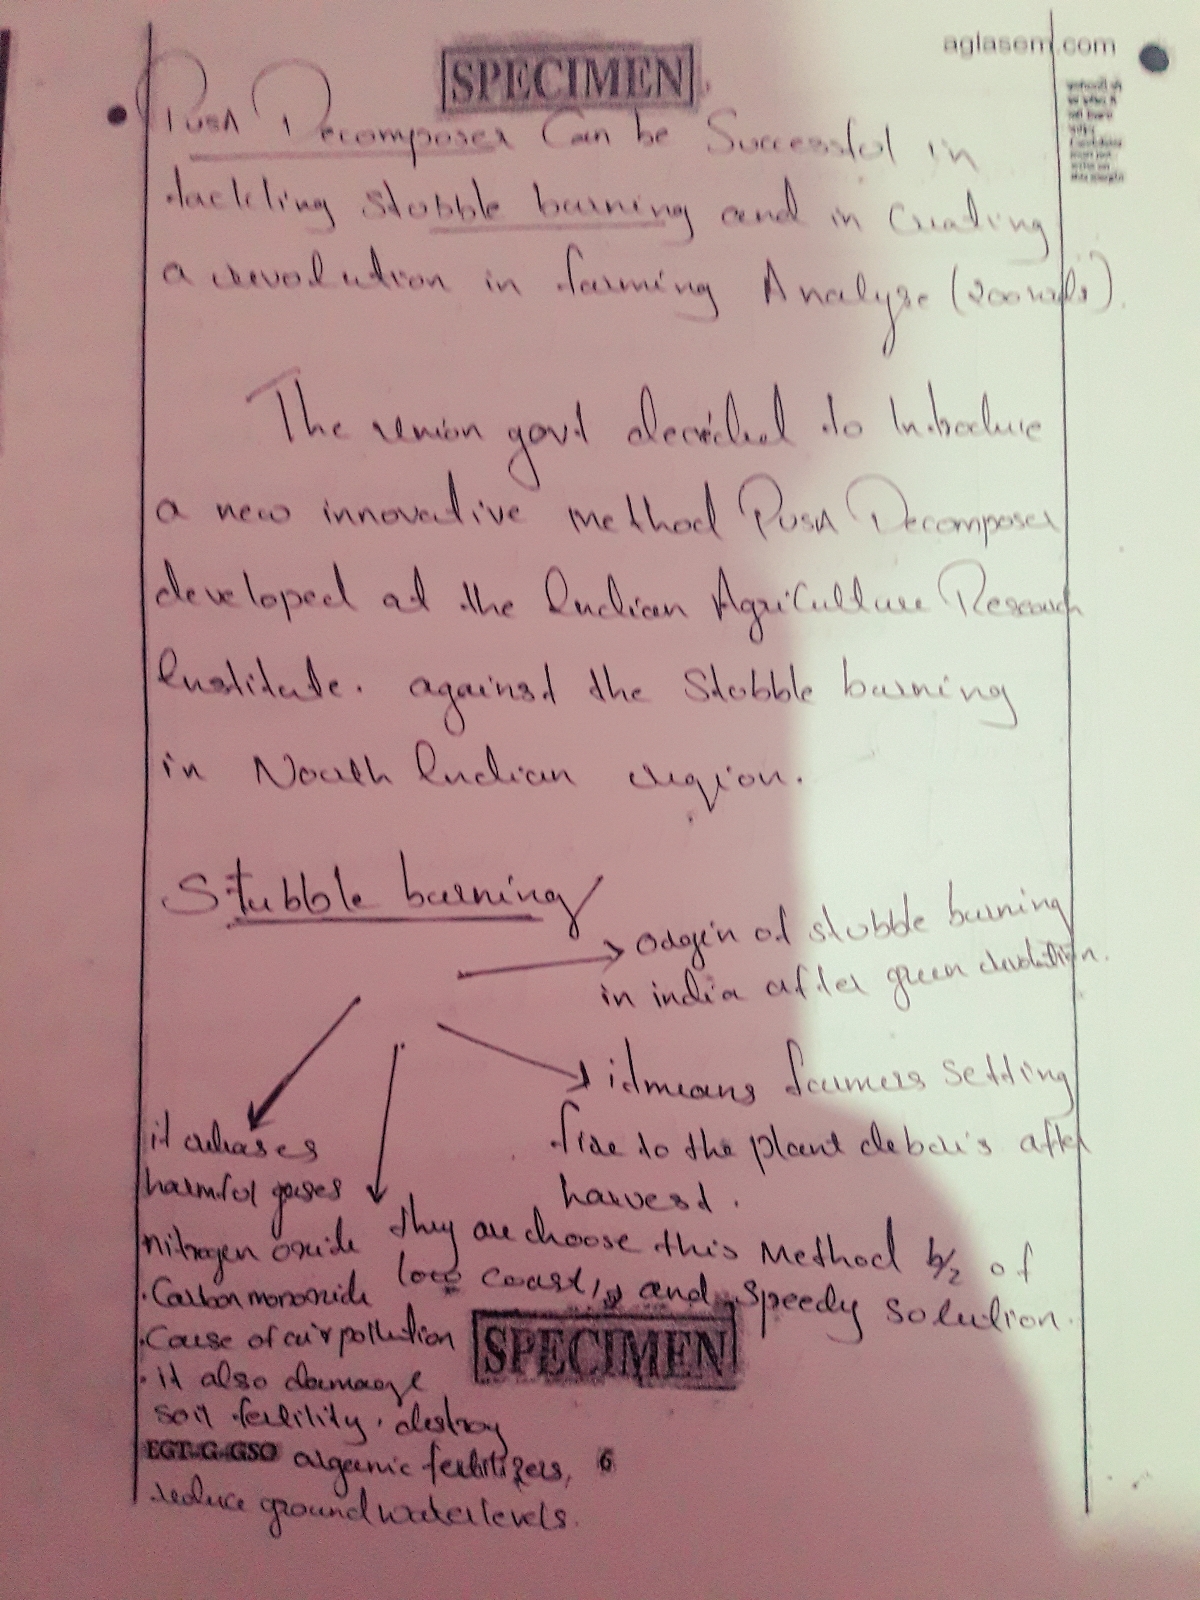 aglasem.com
SPECIMEN
Pusa Decomposer Can be Successful in
tackling stubble burning and in Creating
a revolution in farming Analyse (200 wds).
The union govt decided to Introduce
a new innovative method Pusa Decomposer
developed at the Indian Agriculture Research
Institute. against the Stubble burning
in North Indian region.
Stubble burning
origin of stubble burning
in india after green revolution.
it means farmers setting
fire to the plant debris after
harvest.
they are choose this Method b/z of
low coast, and speedy solution.
it releases
harmful gases
nitrogen oxide
.Carbon monoxide
.Cause of air pollution
. it also damage
soil fertility, destroy
organic fertilizers,
reduce ground water levels.
SPECIMEN
EGT-G-GSO 6